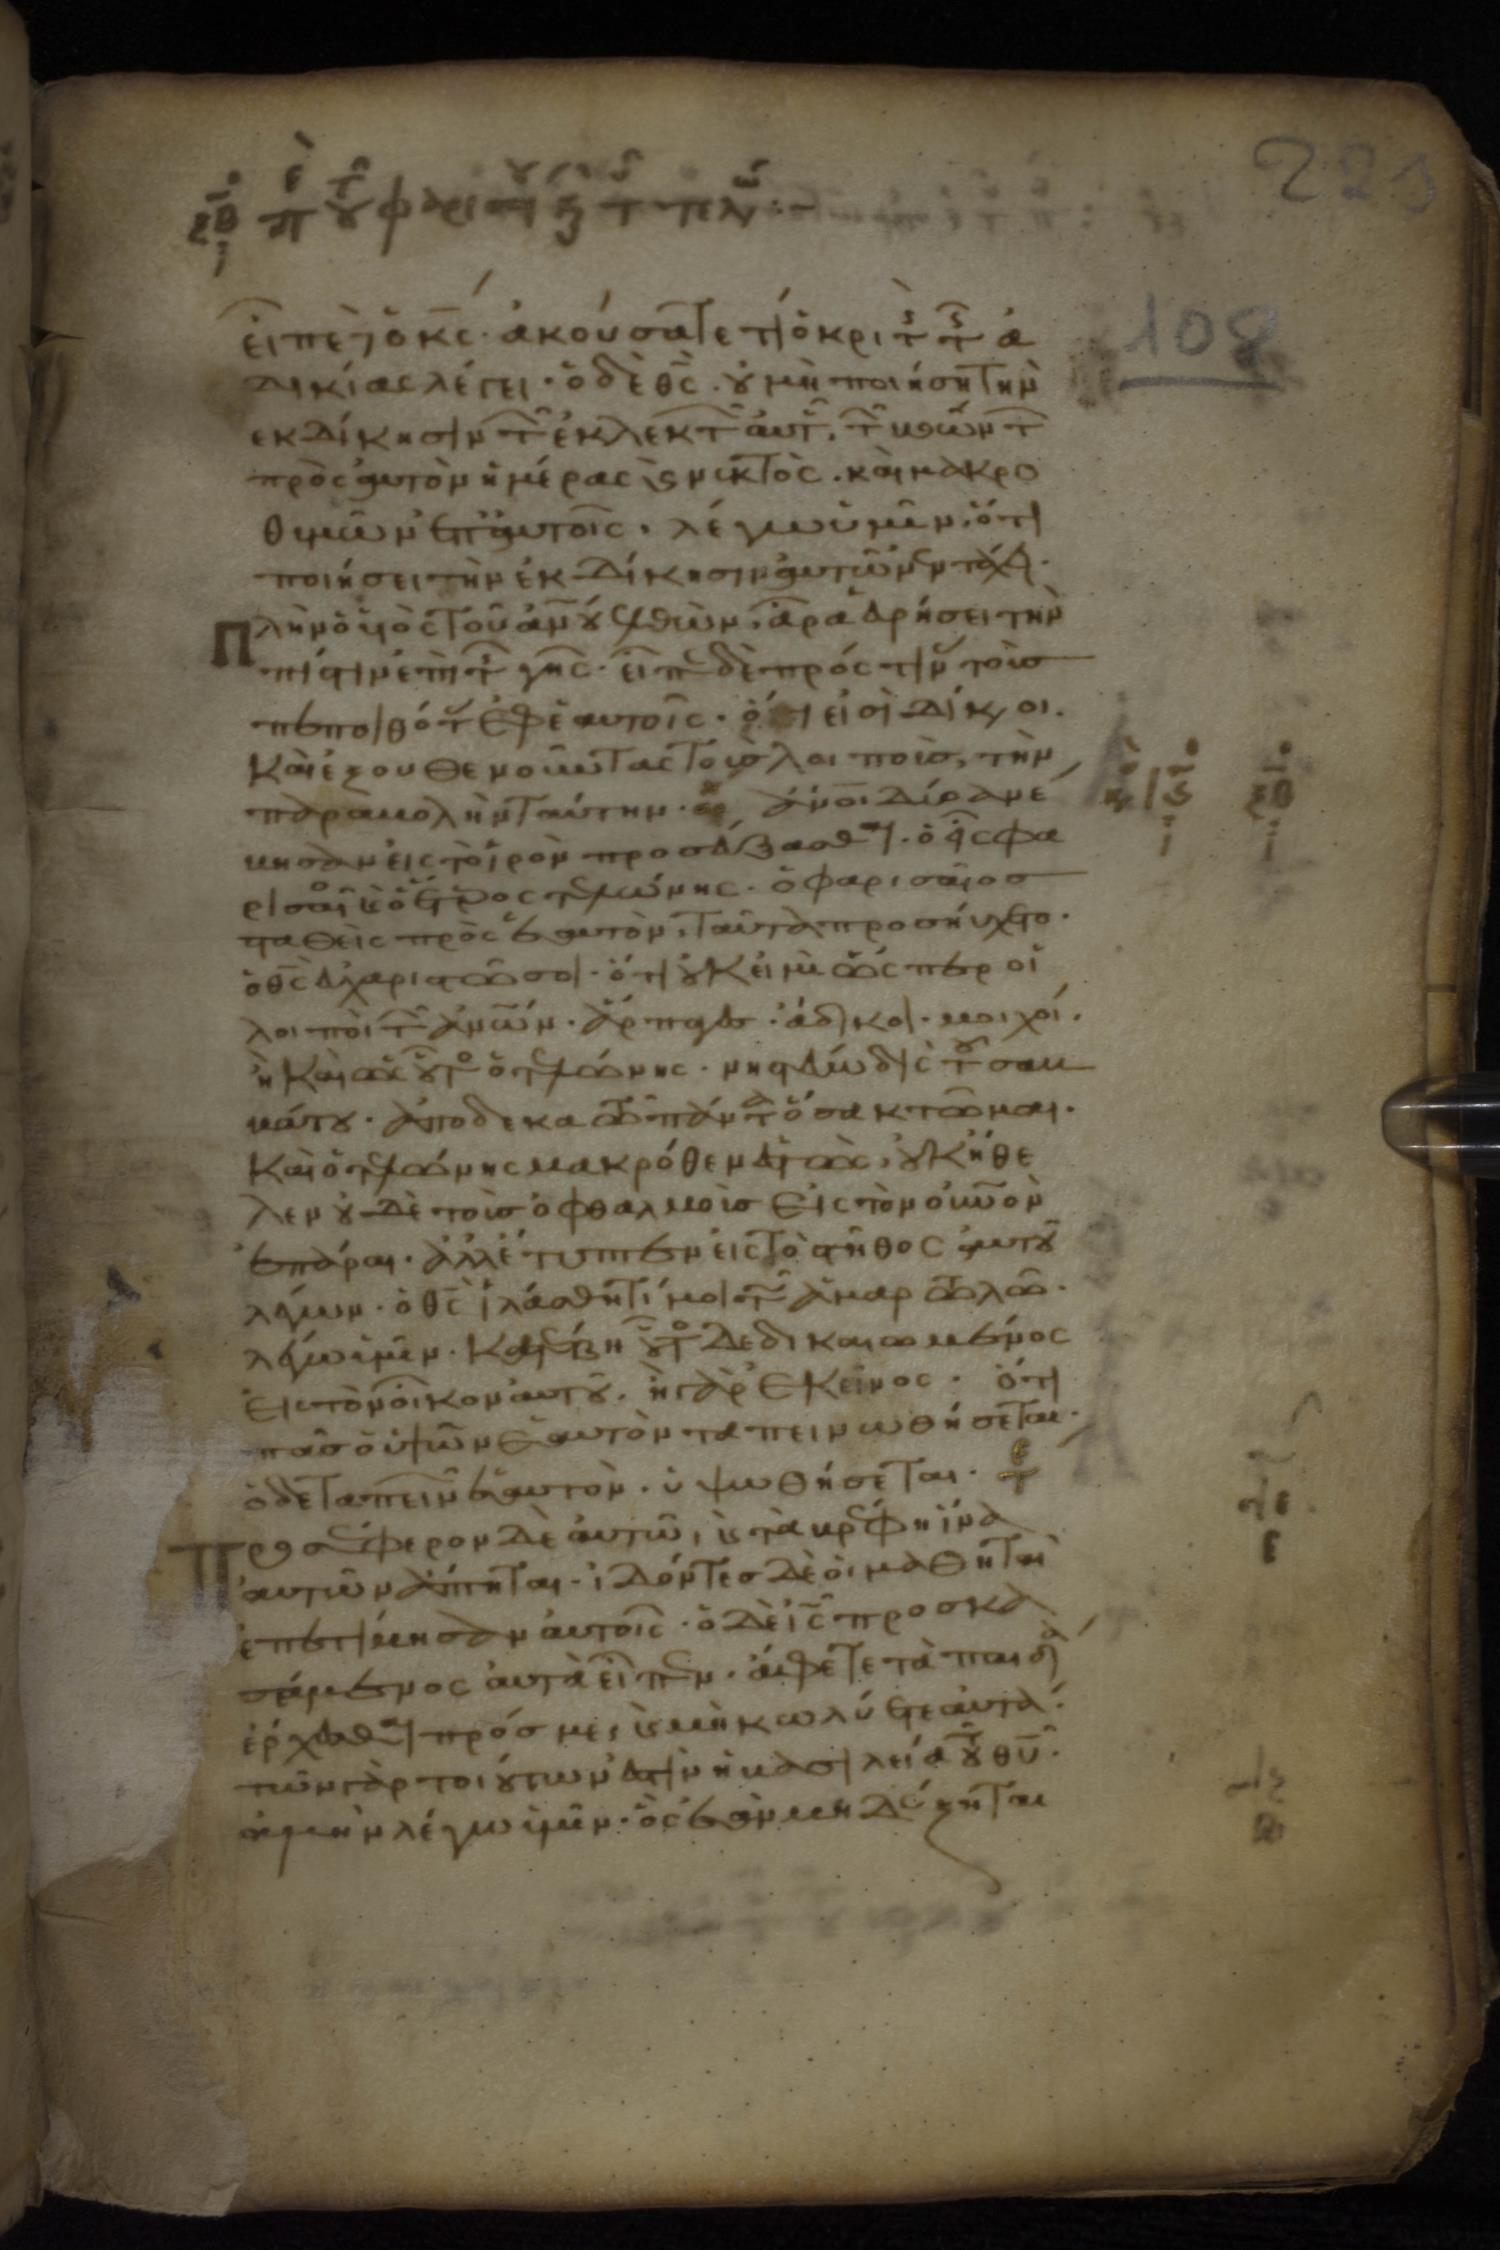 223
ξβ πε τοῦ φαρισαίου καὶ τοῦ τελώνου
108
εἶπε δὲ ὁ κς̄· ἀκούσατε τί ὁ κριτὴς τῆς ἀ
δικίας λέγει· ὁ δὲ θς̄· οὐ μὴ ποιήσῃ τὴν
ἐκδίκησιν τῶν ἐκλεκτῶν αὐτοῦ, τῶν βοώντων
πρὸς αὐτὸν ἡμέρας καὶ νυκτὸς· καὶ μακρο
θυμῶν ἐπ' αὐτοῖς· λέγω ὑμῖν, ὅτι
ποιήσει τὴν ἐκδίκησιν αὐτῶν ἐν τάχει·
Πλὴν ὁ υἱὸς τοῦ ἀνου ἐλθὼν, ἆρα εὑρήσει τὴν
πίστιν ἐπὶ τῆς γῆς· εἶπεν δὲ πρός τινας τοὺσ
πεποιθότας ἐφ' ἑαυτοῖς· ὅτι εἰσὶ δίκαιοι·
Καὶ ἐξουθενοῦντας τοὺσ λοιποὺσ, τὴν
παραβολὴν ταύτην· ἄνοι δύο ἀνέ
βησαν εἰς τὸ ἱερὸν προσεύξασθαι· ὁ εἷς φα
ρισαῖος καὶ ὁ ἕτερος τελώνης· ὁ φαρισαῖοσ
σταθεὶς πρὸς ἑαυτὸν, ταῦτα προσηύχετο·
ὁ θς̄ εὐχαριστῶ σοι· ὅτι οὐκ εἰμὶ ὥσπερ οἱ
λοιποὶ τῶν ἀνων· ἅρπαγες· ἄδικοι· μοιχοί·
ἢ καὶ ὡς οὗτος ὁ τελώνης· νηστεύω δὶς τοῦ σαβ
βάτου· ἀποδεκατῶ πάντα ὅσα κτῶμαι·
Καὶ ὁ τελώνης μακρόθεν ἑστὼς, οὐκ ἤθε
λεν οὐδὲ τοὺσ ὀφθαλμοὺσ εἰς τὸν οὐνον
ἐπᾶραι· ἀλλ' ἔτυπτεν εἰς τὸ στῆθος αὐτοῦ
λέγων· ὁ θς̄ ἱλάσθητί μοι τῷ ἁμαρτωλῷ·
λέγω ὑμῖν· κατέβη οὗτος δεδικαιωμένος
εἰς τὸν οἶκον αὐτοῦ, ἢ γὰρ ἐκεῖνος· ὅτι
πᾶσ ὁ ὑψῶν ἑαυτὸν ταπεινωθήσεται·
ὁ δὲ ταπεινῶν ἑαυτὸν· ὑψωθήσεται· τε
Προσέφερον δὲ αὐτῷ, καὶ τὰ βρέφη ἵνα
αὐτῶν ἅπτηται· ἰδόντεσ δὲ οἱ μαθηταὶ
ἐπετίμησαν αὐτοῖς· ὁ δὲ ις̄ προσκα
λεσάμενος αὐτὰ εἶπεν· ἄφετε τὰ παιδία
ἔρχεσθαι πρόσ με, καὶ μὴ κωλύετε αὐτά·
τῶν γὰρ τοιούτων ἐστὶν ἡ βασιλεία τοῦ θυ·
ἀμὴν λέγω ὑμῖν· ὃς ἐὰν μὴ δέξηται